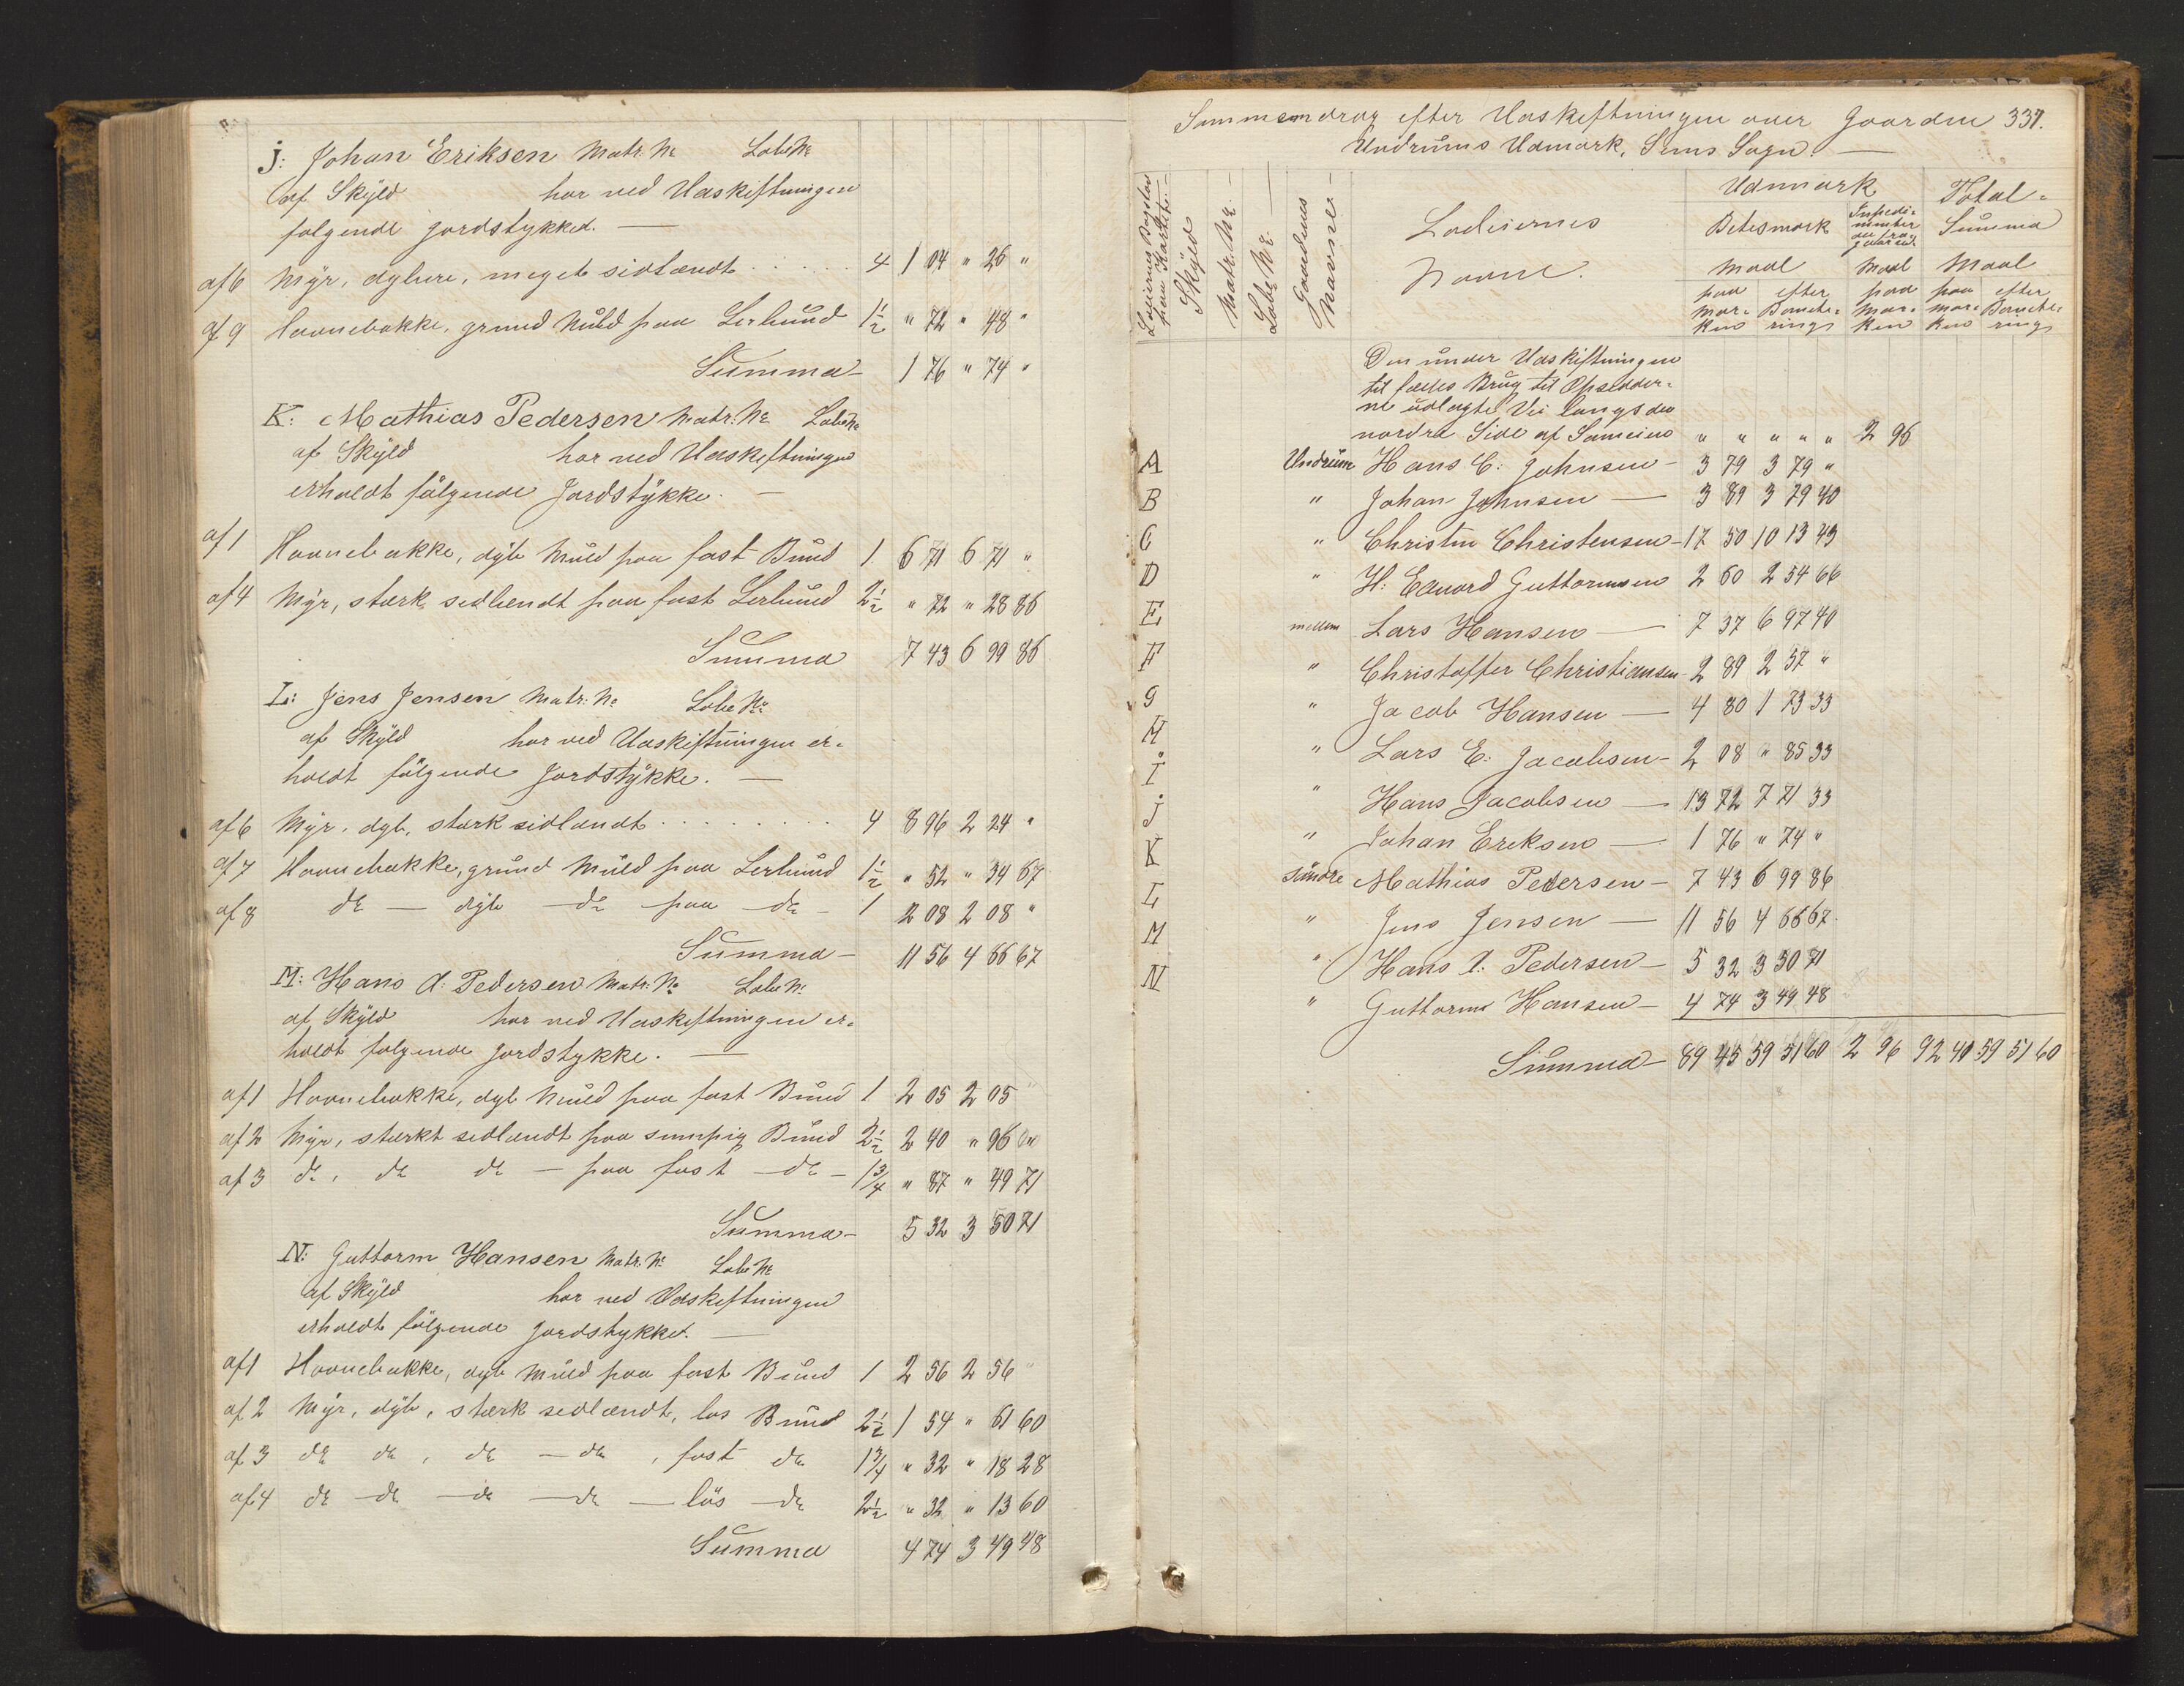 j: Johan Eriksen Matr. No Løbe No
af Skÿld har ved Udskiftningen
følgende Jordstykke.
af 6 Mÿr, dyb, meget sidlændt 4 1 04 " 26 "
af 9 Havnebakke, grund Muld paa Lerbund 1½ " 72 " 48 "
Summa 1 76 " 74 "
K: Mathias Pedersen Matr: No Løbe No
af Skÿld har ved Udskiftningen
erholdt følgende Jordstÿkke.
af 1 Havnebakke, dÿb Muld paa fast Bund 1 6 71 6 71 "
af 4 Mÿr, stærk sidlændt paa fast Lerbund 2½ " 72 " 28 86
Summa 7 43 6 99 86
L: Jens Jensen Matr: No Løbe No
af Skÿld har ved Udskiftningen er-
holdt følgende Jordstÿkke.
af 6 Mÿr, dyb, stærk sidlændt 4 8 96 2 24 "
af 7 Havnebakke, grund Muld paa Lerbund 1½ " 52 " 34 67
af 8 do — dÿb — do paa — do — 1 2 08 2 08 "
Summa 11 56 4 66 67
M: Hans A: Pedersen Matr. No Løbe No
af Skÿld har ved Udskiftningen er-
holdt følgende Jordstykke.
af 1 Havnebakke, dyb Muld paa fast Bund 1 2 05 2 05 "
af 2 Mÿr, stærkt sidlændt paa sumpig Bund 2½ 2 40 " 96 "
af 3 do, do do — paa fast — do — 1¾ " 87 " 49 71
Summa 5 32 3 50 71
N: Guttorm Hansen Matr. No Løbe No
af Skÿld har ved Udskiftningen
erholdt følgende Jordstykke.
af 1 Havnebakke, dyb Muld paa fast Bund 1 2 56 2 56 "
af 2 Mÿr, dÿb, stærk sidlændt, løs Bund 2½ 1 54 " 61 60
af 3 do do, do — do, fast do 1¾ " 32 " 18 28
af 4 do — do — do — do — løs — do 2½ " 32 " 13 60
Summa 4 74 3 49 48
Sammendrag efter Udskiftningen over Gaarden 337.
Undrums Udmark, Sems Sogn.
Lodeiernes Bogstav
paa Kartet.
Skÿld
Matr. No
Løbe No
Gaardens
Navne
Lodeiernes
Navne.
Udmark
Betesmark
Total-
Summa
Maal Maal Maal
paa efter paa paa efter
Mar- Bonite- Mar- Mar- Bonite-
ken rings ken ken rings
Den under Udskiftningen
til fælles Brug til Opsidder-
ne udlagte Vei langs den
nordre Side af Sameien " " " " " 2 96
A Undrum Hans C: Johnsen — 3 79 3 79 "
B " Johan Johnsen — 3 89 3 79 40
C " Christen Christensen — 17 50 10 13 43
D " H: Edvard Guttormsen 2 60 2 54 66
E mellem Lars Hansen — 7 37 6 97 40
F " Christoffer Christiansen 2 89 2 37 "
G " Jacob Hansen — 4 80 1 73 33
H " Lars E: Jacobsen — 2 08 " 85 33
I " Hans Jacobsen — 13 72 7 71 33
j " Johan Eriksen — 1 76 " 74 "
K søndre Mathias Pedersen — 7 43 6 99 86
L " Jens Jensen — 11 56 4 66 67
M " Hans A: Pedersen — 5 32 3 50 71
N " Guttorm Hansen — 4 74 3 49 48
Summa — 89 45 59 51 60 2 96 92 41 59 51 60